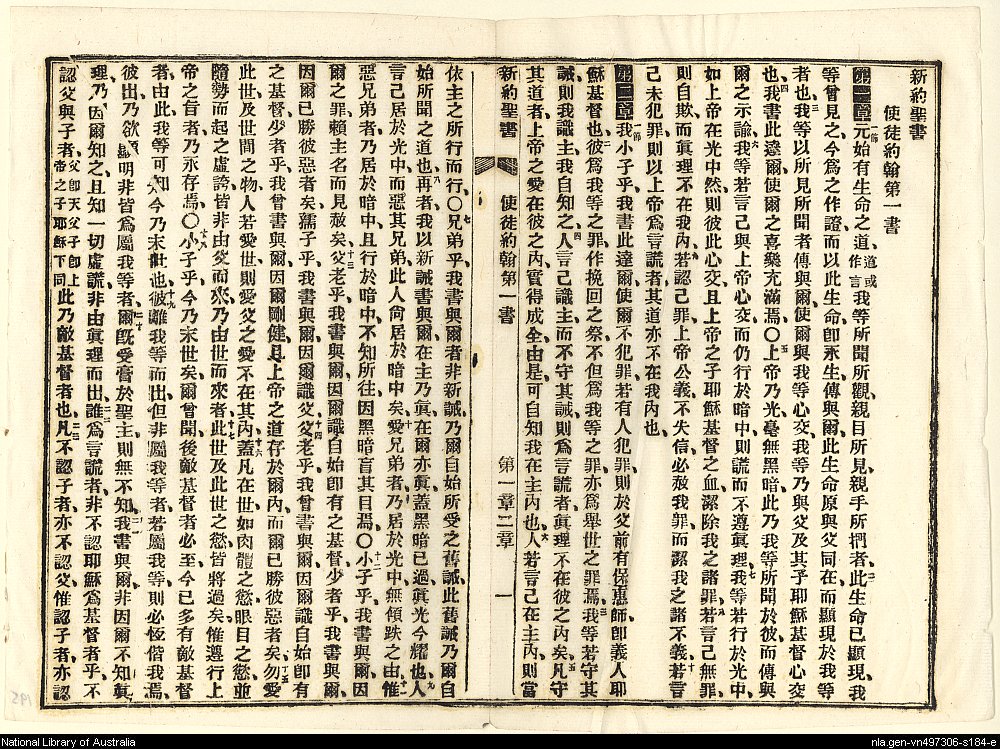 新約聖書
使徒約翰第一書
第一章一節元始有生命之道、道或作言我等所聞所觀、親目所見、親手所捫者、二此生命已顯現、我
等曾見之、今爲之作證、而以此生命卽永生傳與爾、此生命原與父同在、而顯現於我等
者也、三我等以所見所聞者、傳與爾、使爾與我等心交、我等乃與父及其子耶穌基督心交
也、四我書此達爾、使爾之喜樂充滿焉、○五上帝乃光、毫無黑暗、此乃我等所聞於彼、而傳與
爾之示諭、六我等若言己與上帝心交、而仍行於暗中、則謊而不遵眞理、七我等若行於光中、
如上帝在光中、然則彼此心交、且上帝之子耶穌基督之血、潔除我之諸罪、八若言己無罪、
則自欺、而眞理不在我內、九若認己罪、上帝公義、不失信、必赦我罪、而潔我之諸不義、十若言
己未犯罪、則以上帝爲言謊者、其道亦不在我內也、
第二章一節我小子乎、我書此達爾、使爾不犯罪、若有人犯罪、則於父前有保惠師、卽義人耶
穌基督也、二彼爲我等之罪、作挽回之祭、不但爲我等之罪、亦爲舉世之罪焉、三我等若守其
誡、則我識主、我自知之、四人言己識主、而不守其誡、則爲言謊者、眞理不在彼之內矣、五凡守
其道者、上帝之愛在彼之內、實得成全、由是可自知我在主內也、六人若言己在主內、則當
新約聖書 使徒約翰第一書 第一章二章 一
依主之所行而行、○七兄弟乎、我書與爾者、非新誡、乃爾自始所受之舊誡、此舊誡乃爾自
始所聞之道也、八再者、我以新誡書與爾、在主乃眞、在爾亦眞、蓋黑暗已過、眞光今耀也、九人
言己居於光中、而惡其兄弟、此人尙居於暗中矣、十愛兄弟者、乃居於光中、無傾跌之由、十一惟
惡兄弟者、乃居於暗中、且行於暗中、不知所往、因黑暗盲其目焉、○十二小子乎、我書與爾、因
爾之罪、賴主名而見赦矣、十三父老乎、我書與爾、因爾識自始卽有之基督、少者乎、我書與爾、
因爾已勝彼惡者矣、孺子乎、我書與爾、因爾識父、十四父老乎、我曾書與爾、因爾識自始卽有
之基督、少者乎、我曾書與爾、因爾剛健、且上帝之道存於爾內、而爾已勝彼惡者矣、十五勿愛
此世、及世間之物、人若愛世、則愛父之愛不在其內、十六蓋凡在世、如肉體之慾、眼目之慾、並
隨勢而起之虛誇、皆非由父而來、乃由世而來者、十七此世及此世之慾、皆將過矣、惟遵行上
帝之旨者、乃永存焉、○十八小子乎、今乃末世矣、爾曾聞後敵基督者必至、今已多有敵基督
者、由此我等可知今乃末世也、十九彼離我等而出、但非屬我等者、若屬我等、則必恆偕我焉、
彼出乃欲顯明非皆爲屬我等者、二十爾旣受膏於聖主、則無不知、二一我書與爾、非因爾不知眞
理、乃因爾知之、且知一切虛謊、非由眞理而出、二二誰爲言謊者、非不認耶穌爲基督者乎、不
認父與子者、父卽天父子卽上帝之子耶穌下同此乃敵基督者也、二三凡不認子者、亦不認父、惟認子者、亦認
National Library of Australia
nla.gen-vn497306-s184-e